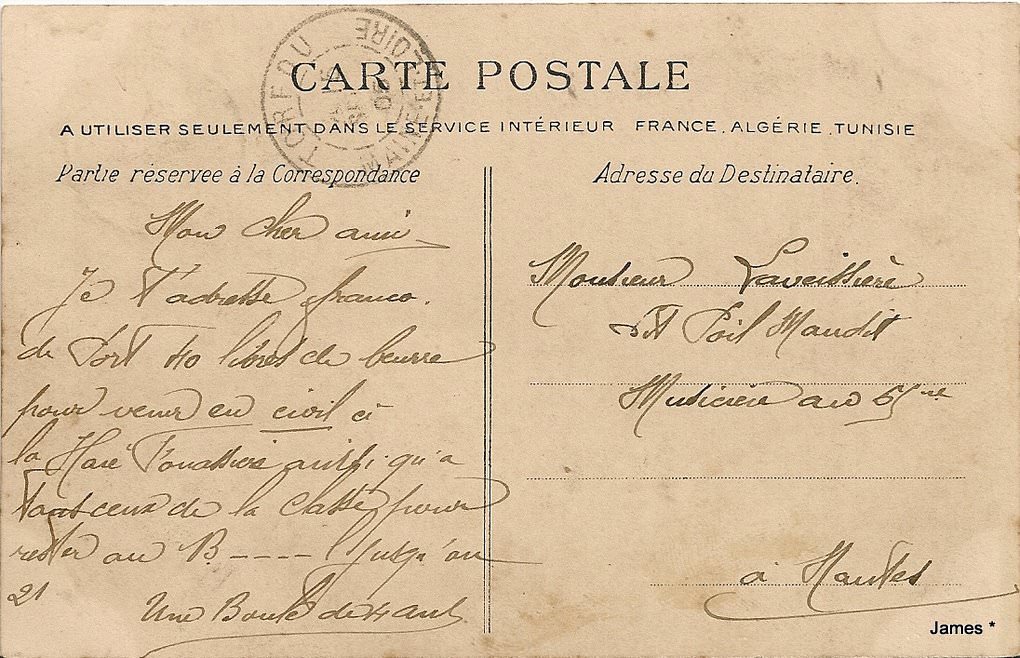 TORFOU
MAINE-ET-LOIRE
CARTE POSTALE
A UTILISER SEULEMENT DANS LE SERVICE INTÉRIEUR FRANCE, ALGÉRIE, TUNISIE
Partie réservée à la Correspondance
Mon cher ami
Je t'adresse franco.
de Port 40 livres de beurre
pour venir en civil à
la aussi qu'a
tous ceux de la classe pour
rester au B---- Jusqu'au
21
Une Boule de 4 ans.
Adresse du Destinataire.
Monsieur Laveissière
dit Poil Maudit
au 65me
à Nantes
James *